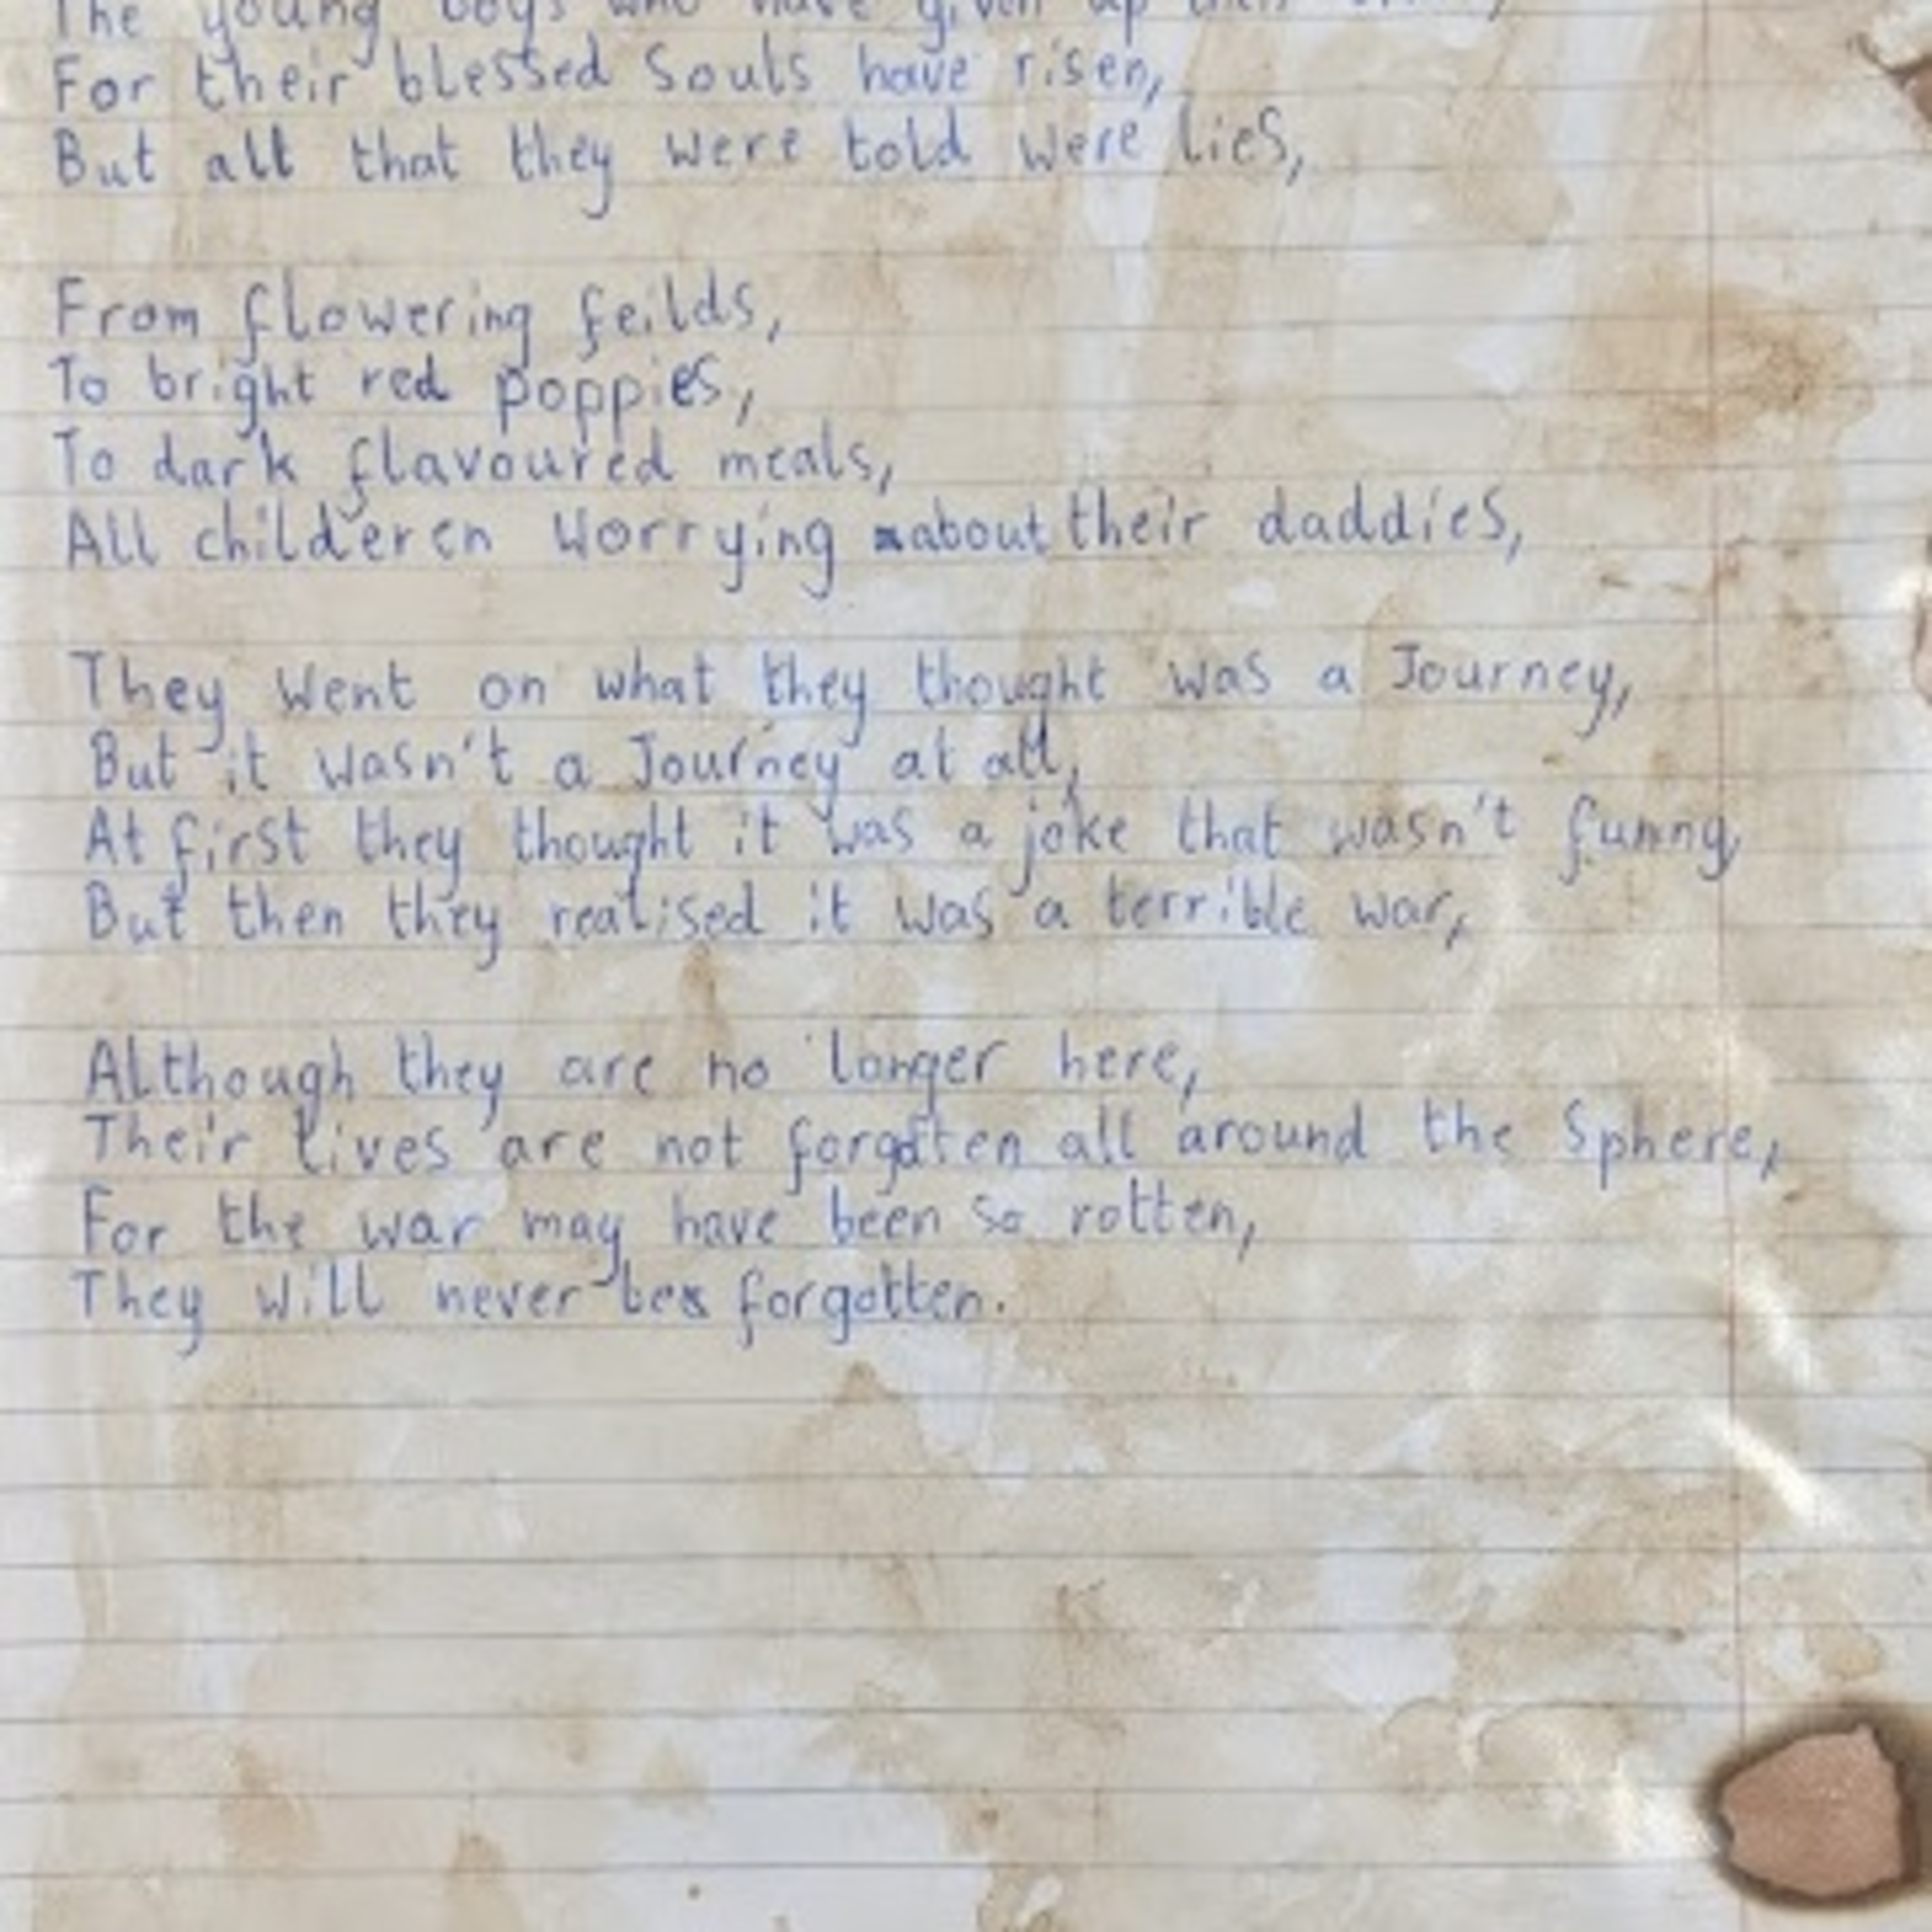 The young boys who have given up their
For their blessed Souls have risen,
But all that they were told were lies,
From flowering feilds,
To bright red poppies,
To dark flavoured meals,
All childeren worrying about their daddies,
They went on what they thought was a Journey,
But it wasn't a Journey at all,
At first they thought it was a joke that wasn't funny,
But then they realised it was a terrible war,
Although they are no longer here,
Their lives are not forgotten all around the Sphere,
For the war may have been so rotten,
They will never be forgotten.